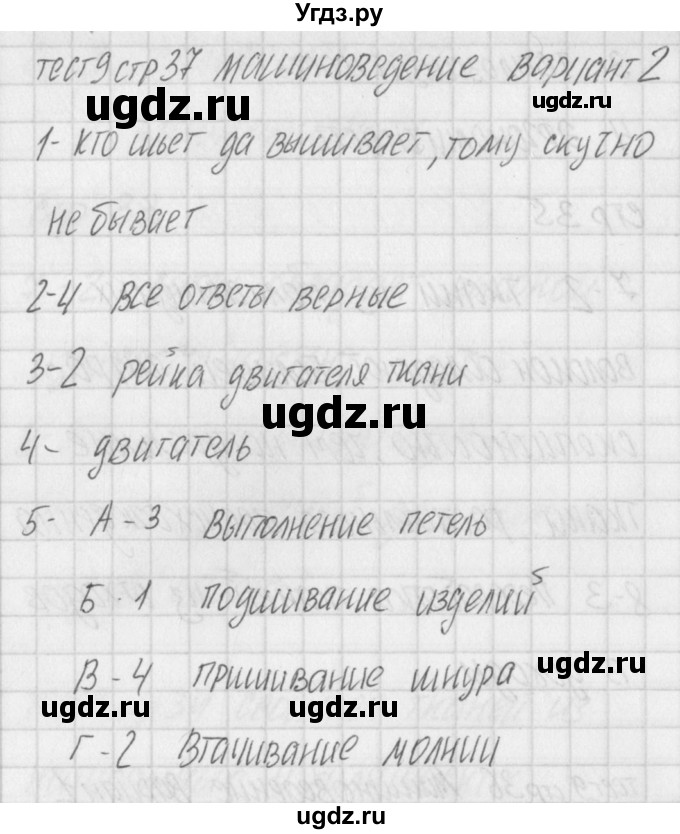 Угдз.ру
тест9 стр37 машиноведение вариант 2
ugdz.ru ugdz.ru
1- кто шьет да вышивает, тому скучно
не бывает
2-4 все ответы верные
3-2 рейка двигателя ткани
ugdz.ru
4- двигатель
5- А-3 Выполнение петель
Б-1 подшивание изделий
ugdz.ru
В-4 пришивание шнура
ugdz.ru ugdz.ru
Г-2 Втачивание молнии
ugdz.ru